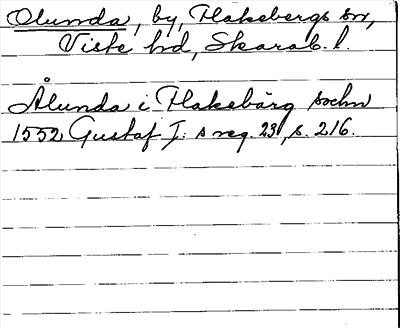 Olunda, by, Flakebergs sn,
Viste hd, Skarab. l.
Ålunda i Flakebärg sochn
1552 Gustaf I:s reg. 23, s. 216.